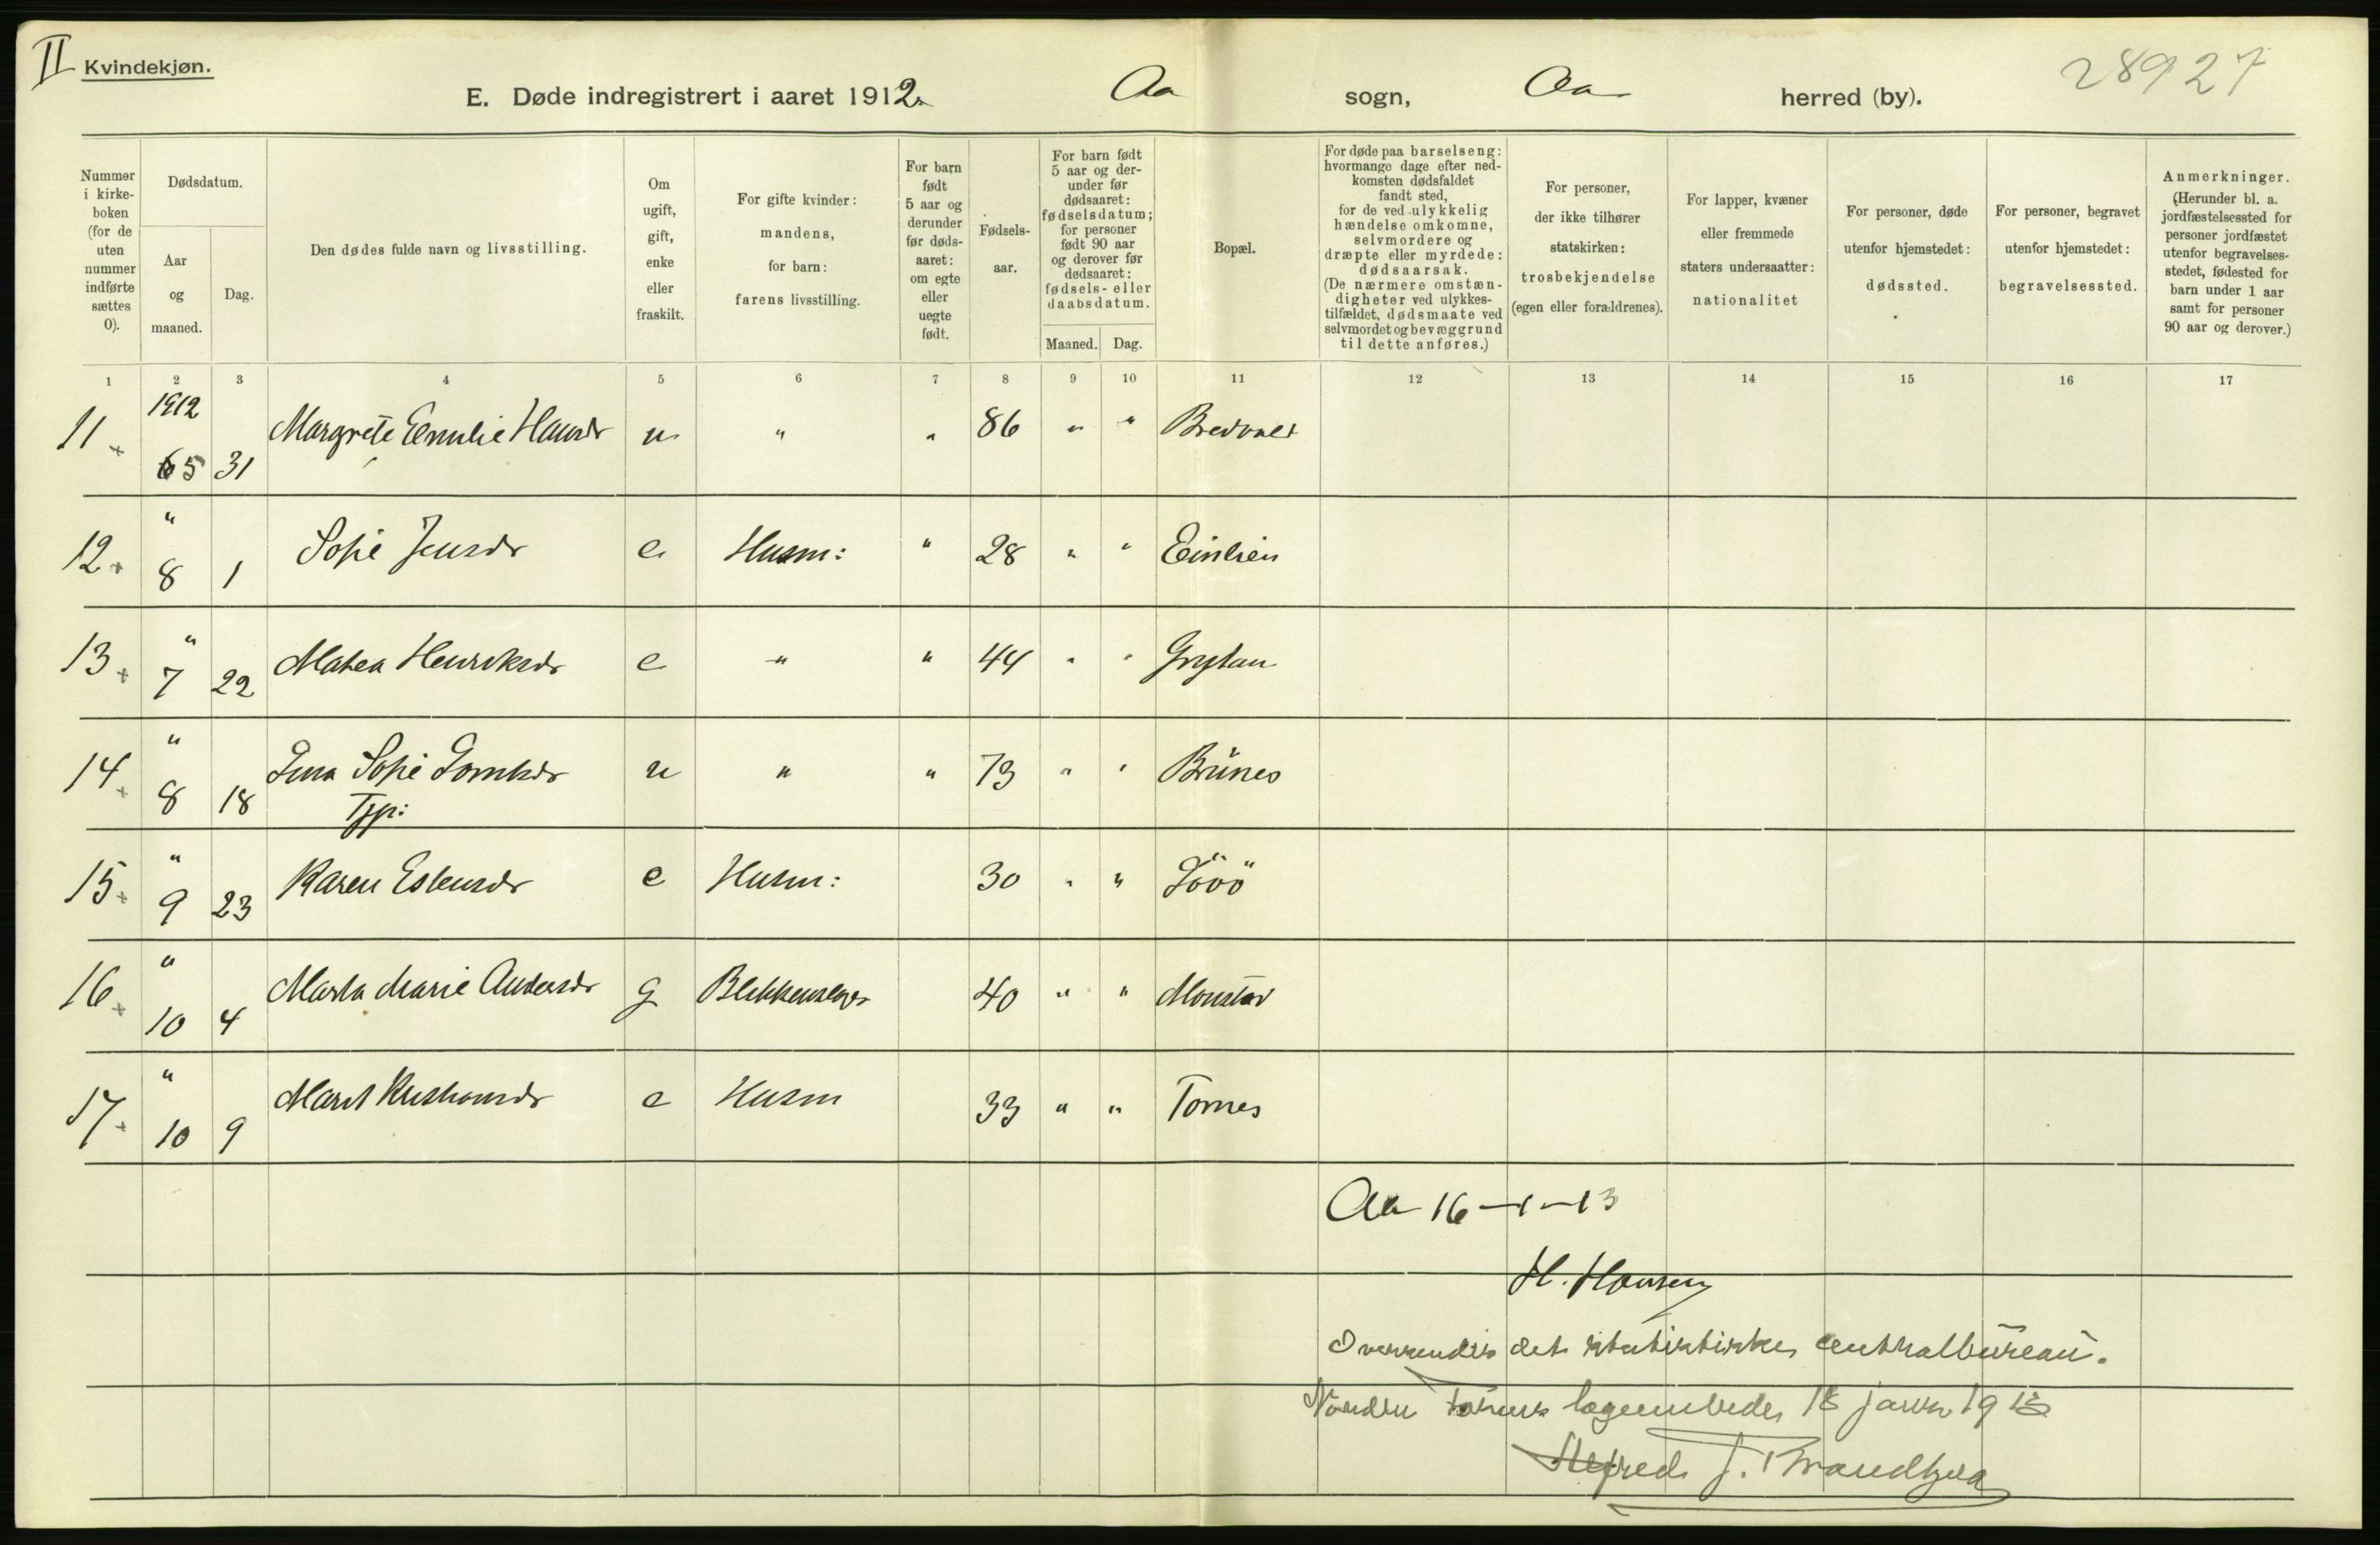 II Kvindekjøn.
28927
E. Døde indregistrert i aaret 1912. Aa sogn, Aa herred (by).
Nummer i kirke-boken (for de uten nummer indførte sættes 0).
Dødsdatum.
Aar og maaned.
Dag.
Den dødes fulde navn og livsstilling.
Om ugift, gift, enke eller fraskilt.
For gifte kvinder: mandens, for barn: farens livsstilling.
For barn født 5 aar og derunder før døds-aaret: om egte eller uegte født.
Fødsels-aar.
For barn født 5 aar og der-under før dødsaaret: fødselsdatum; for personer født 90 aar og derover før dødsaaret: fødsels- eller daabsdatum.
Maaned. Dag.
Bopæl.
For døde paa barselseng: hvormange dage efter ned-komsten dødsfaldet fandt sted, for de ved ulykkelig hændelse omkomne, selvmordere og dræpte eller myrdede: dødsaarsak. (De nærmere omstæn-digheter ved ulykkes-tilfældet, dødsmaate ved selvmordet og bevæggrund til dette anføres.)
For personer, der ikke tilhører statskirken: trosbekjendelse (egen eller forældrenes).
For lapper, kvæner eller fremmede staters undersaatter: nationalitet
For personer, døde utenfor hjemstedet: dødssted.
For personer, begravet utenfor hjemstedet: begravelsessted.
Anmerkninger. (Herunder bl. a. jordfæstelsessted for personer jordfæstet utenfor begravelses-stedet, fødested for barn under 1 aar samt for personer 90 aar og derover.)
1 2 3 4 5 6 7 8 9 10 11 12 13 14 15 16 17
11 + 1912 5 31 Margrete Emilie Hansdr u " " 86 " " Bredvold
12 + " 8 1 Sofie Jensdr e Husm: " 28 " "
13 + " 7 22 Matea Henriksdr e " " 44 " " Grytan
14 + " 8 18 Sofie u " " 73 " " Brünes
Tjp:
15 + " 9 23 Karen Estensdr e Husm: 30 " "
16 + " 10 4 Marta Marie Andersdr g Blikkenslager 40 " "
17 + " 10 9 Marit e Husm 33 " " Tornes
Aa 16-1-13
H. Hansen
Oversendes det statistiske centralbureau.
Nordre lægeembede, 18 januar 1913